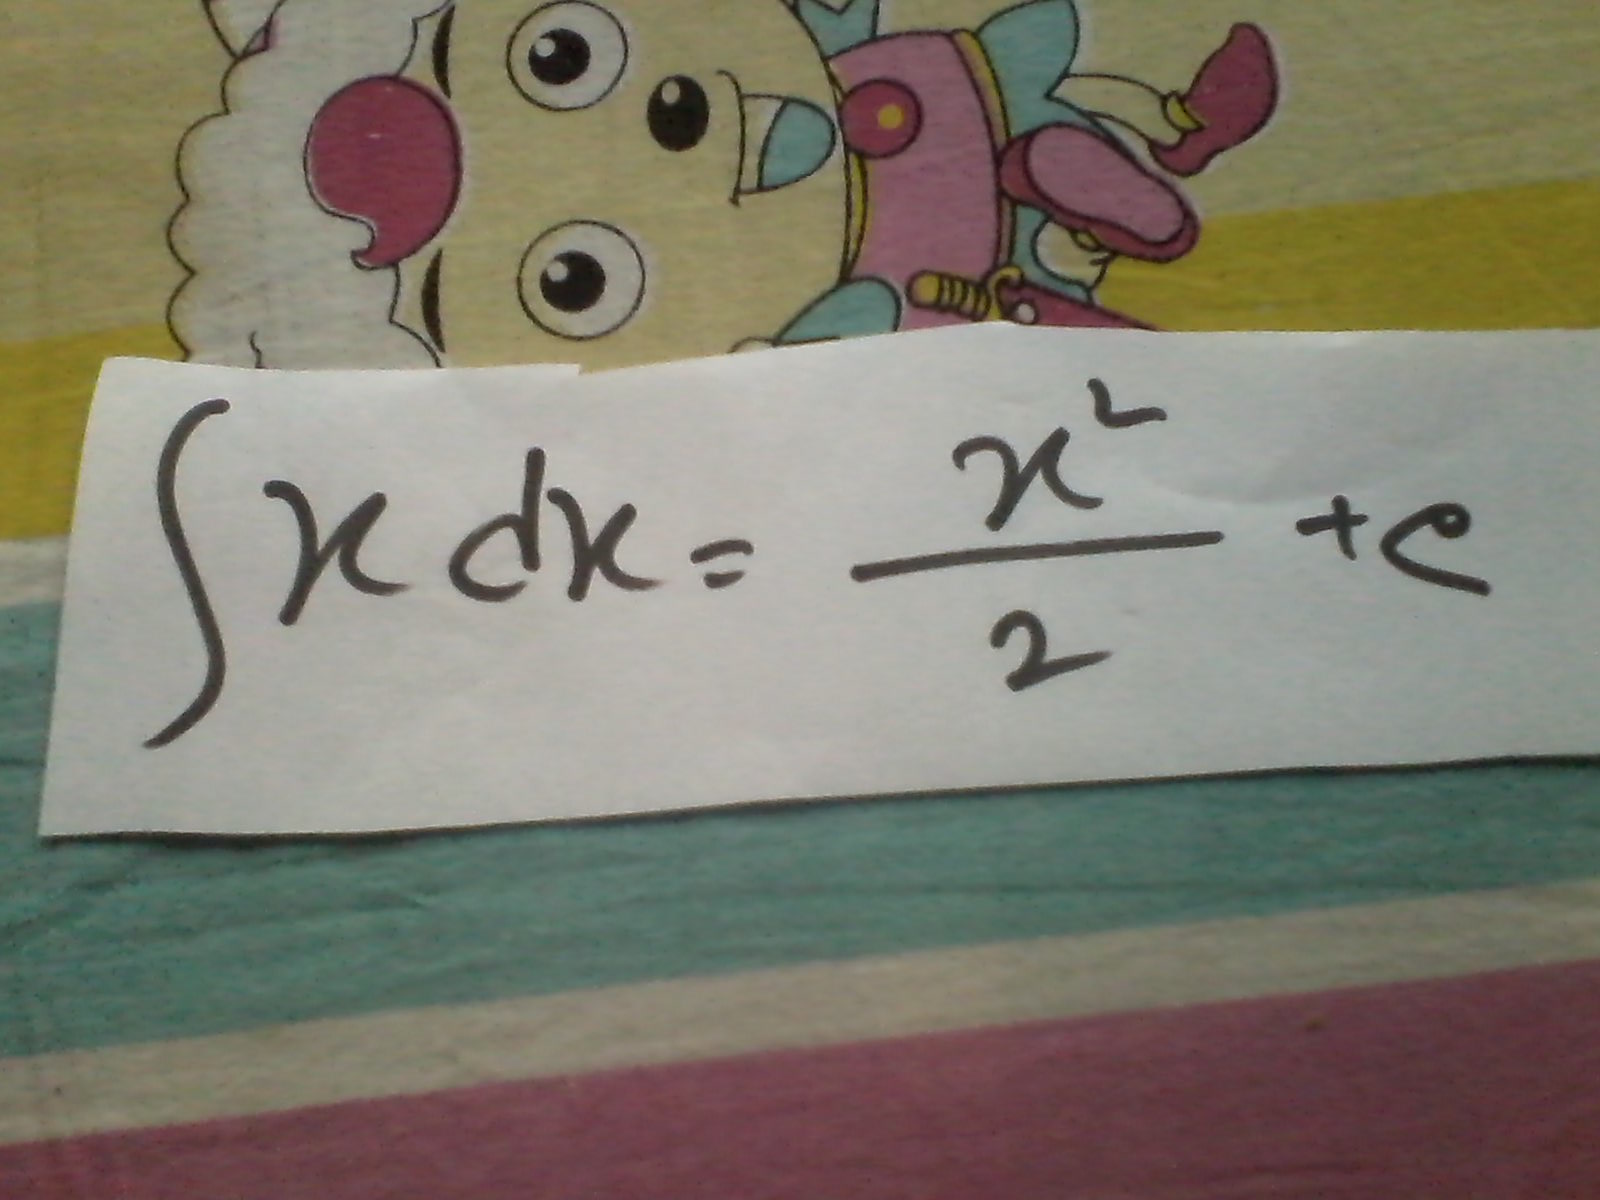 ∫ x dx = x²/2 + c